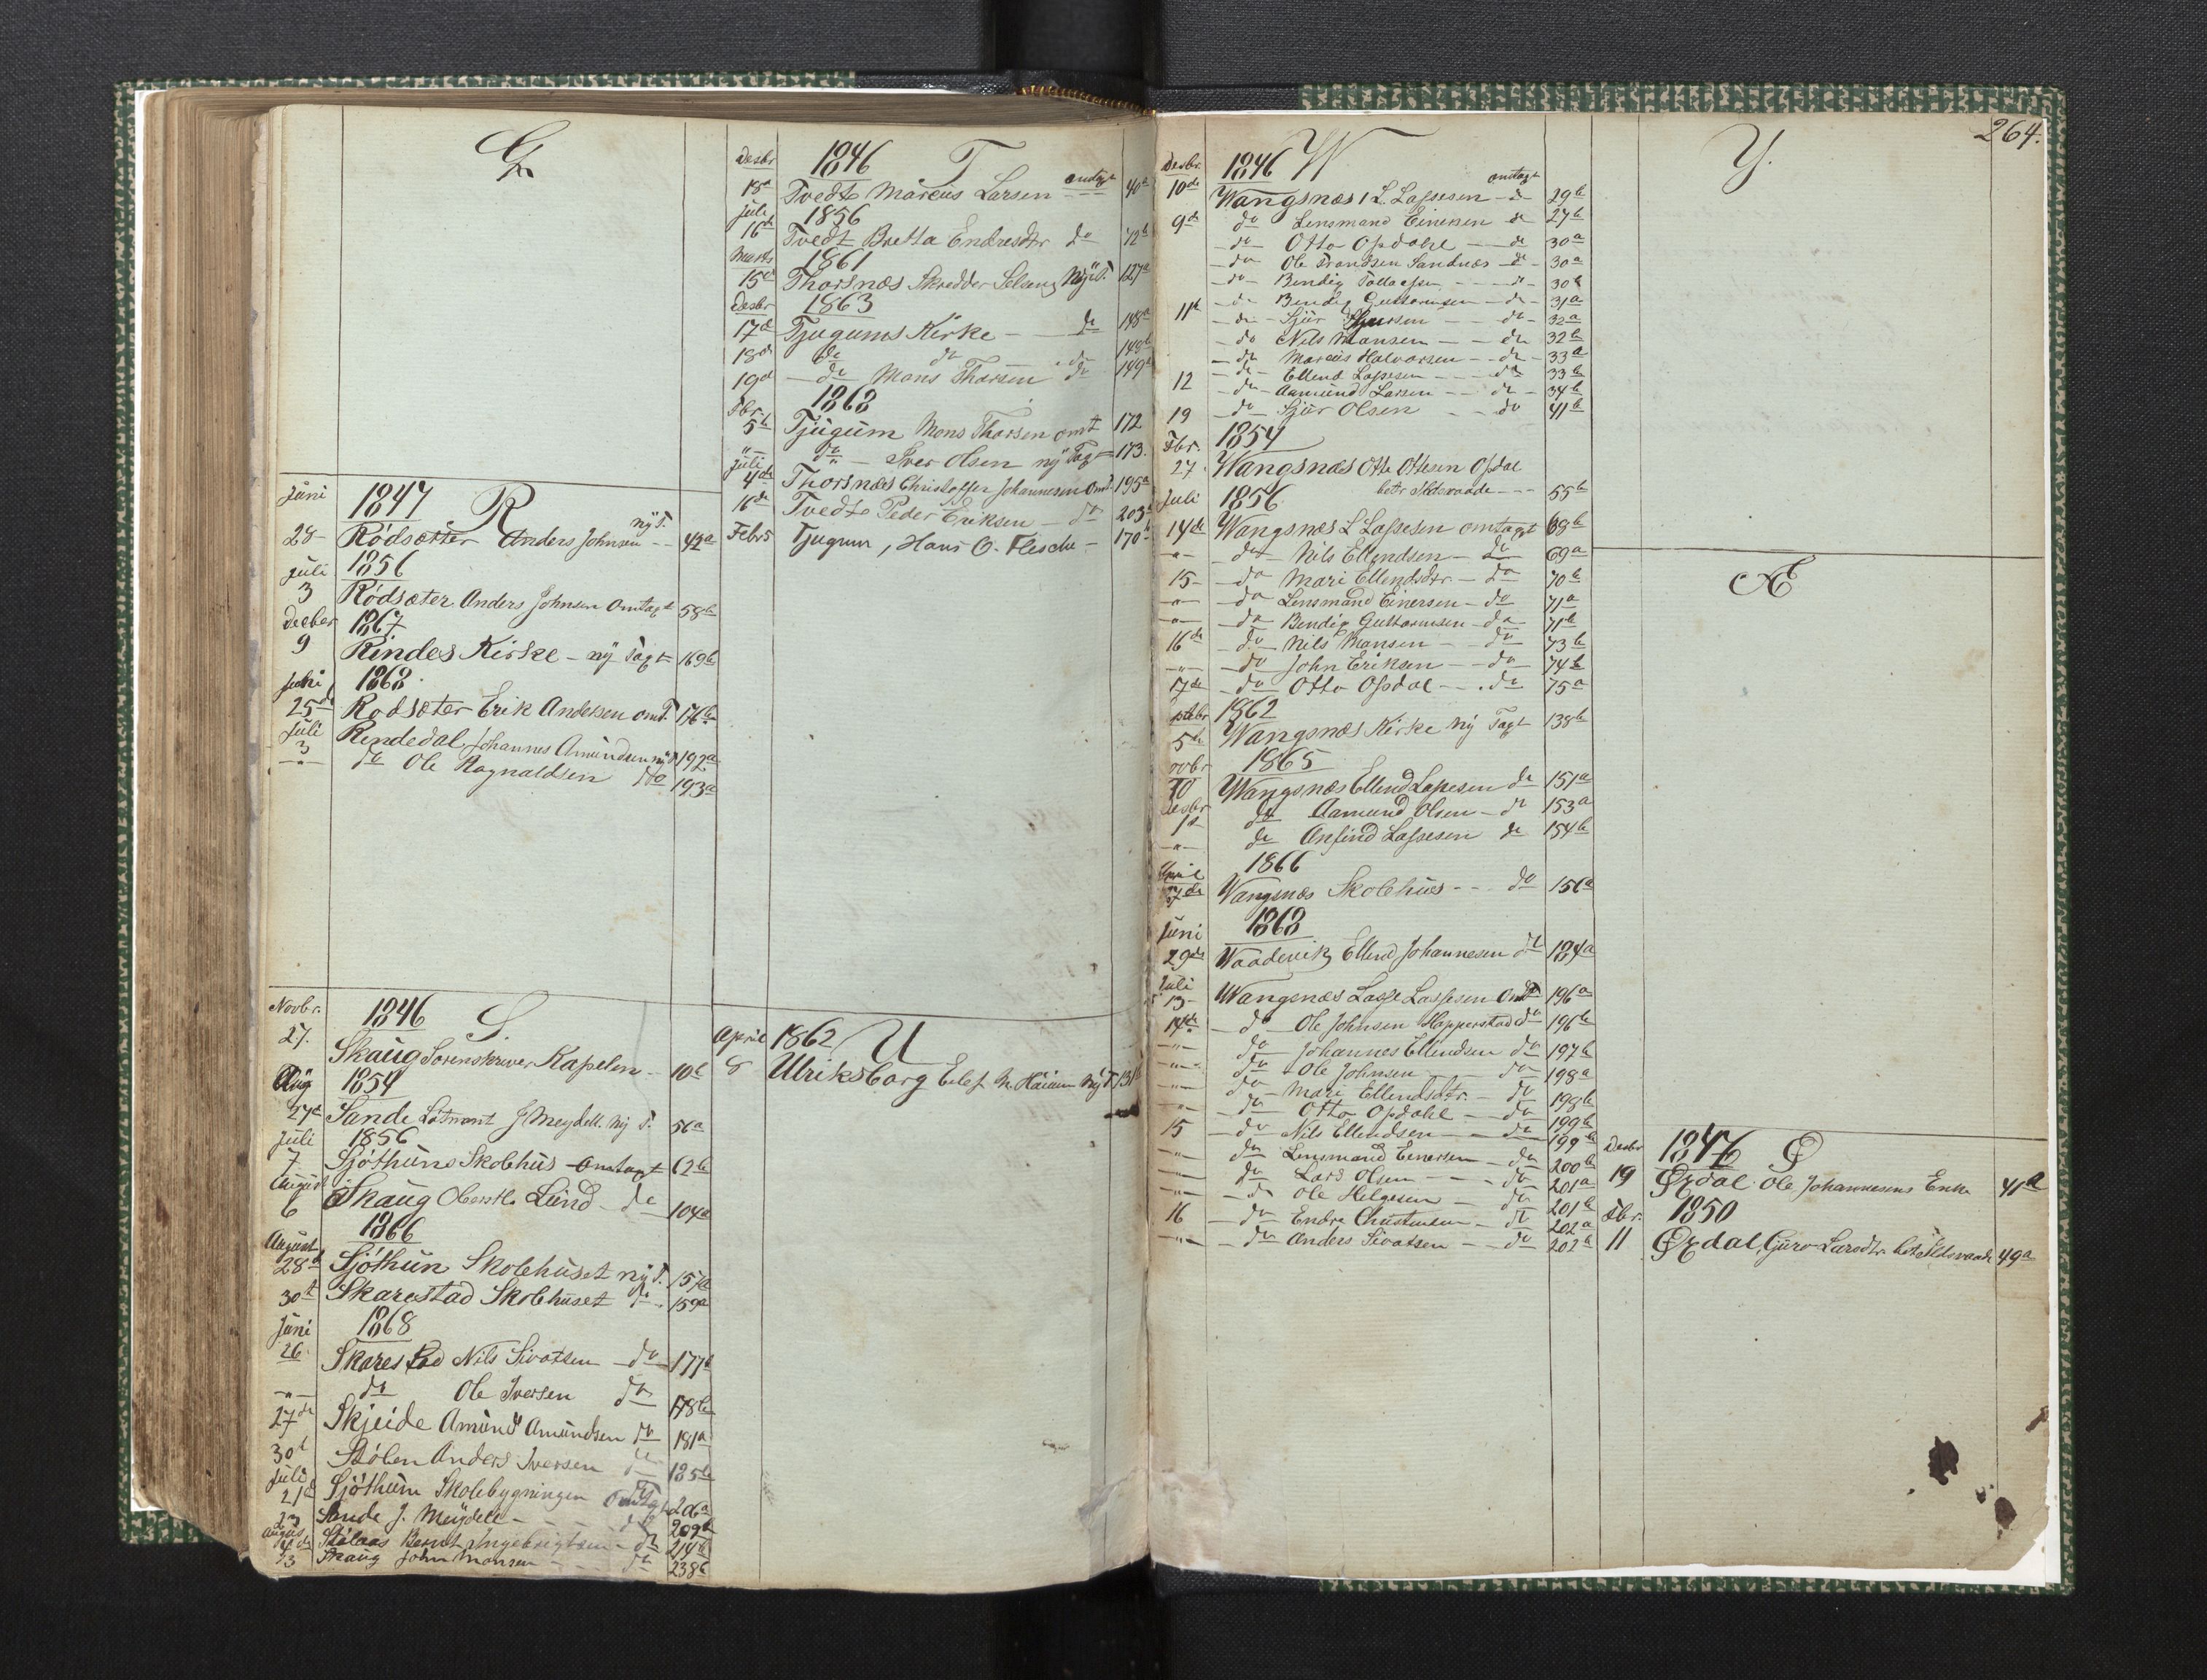 Q
Juni 1847 R
28 Rödsæter Anders Johnsen ny T. 43a
Juli 1856
3 Rödsæter Anders Johnsen omtagt 58b
Decber 1867
9 Rindes Kirke - ny Tagt 169b
Juni 1868
25de Rödsæter Erik Andersen omT. 176b
Juli
3 Rendedal Johannes Amundsen ny T 192a
-"- do Ole Ragnaldsen do 193a
Novbr. 1846 S.
27. Skaug Sorenskriver Kapelen 10b
Aug 1854
27de Sande Lötnant J Meydell ny T. 56a
Juli 1856
7 Sjöthuns Skolehus omtagt 62b
August
6 Skaug Oberstl. Lund do 104a
1866
August
28d Sjöthun Skolehuset ny T. 157a
30t Skarestad Skolehuset do 159a
Juni 1868
26 Skarestad Nils Sivatsen do 177b
-"- do Ole Iversen do 178b
27de Skjeide Amund Amundsen do 181a
30t Stölen Anders Iversen do 185b
Juli
21d Sjöthun Skolebygningen Omtagt 206a
23 Sande J. Meydell - - - do 209b
August
4de Stölaas Berndt Ingebrigtsen - do 214b
13 Skaug John Monsen - - - do 238b
Desbr 1846 T
18d Tvedte Marcus Larsen omtagt 40a
Juli 1856
16d Tvedt Britta Endresdtr do 72b
Marts 1861
15d Thorsnæs Skredder Selseng Ny T. 127a
Desbr 1863
17d Tjugums Kirke - do 148a
18de do do 148b
19d - do - Mons Thorsen do 149b
Fbr. 1868
5te Tjugum Mons Thorsen omt 172
-"- do - Iver Olsen ny Tagt 173.
Juli
4de Thorsnæs Christoffer Johannesen Omt. 195a
16de Tvedte Peder Eriksen - do 203
Febr 5 Tjugum, Hans O. Flesche - 170b
April 1862 U
8 Ulriksborg Eilef N. Haium Ny T 131b
264.
Desbr. 1846 W
10de Wangsnæs L. Lassesen omtagt do 29b
9de do Lensmand Einersen do 27b
- do - Otto Opdahl - do 30a
- do Ole Trondsen Sandnæs - do - 30a
- do - Bendig Tollefsen - do - 30b
- do - Bendig Guttormsen - do - 31a
11te - do - Sjur Sjursen - do - 32a
- do Nils Monsen - - do 32b
- do Marcus Halvorsen - do - 33a
- do - Ellend Lassesen - do 33b
12 - do - Aamund Larsen - do - 34b
19 - do Sjur Olsen - - do 41b
Fbr. 1854
27 Wangsnæs Otto Ottesen Opdal
betr Ildsvaade - - - 55b
Juli 1856
14de Wangsnæs L Lassesen omtagt 68b
-"- - do - Nils Ellendsen - do 69a
15 - do Mari Ellendsdtr - do 70b
-"- - do Lensmand Einersen - do 71a
-"- - do Bendig Guttormsen - do 71b
16de do - Nils Monsen - do 73b
-"- - do John Eriksen - do 74b
17de - do - Otto Opdal - - do 75a
1862
5te Wangsnæs Kirke ny Tagt 138b
1865
10 Wangsnæs Ellend Lassesen do 151a
Desbr
1st do Aamund Olsen - do 153a
-"- do Anfind Lassesen do 154b
April 1866
27de Wangsnæs Skolehus - - do 156a
Juni 1868
29de Waadevik Ellend Johannesen do 184a
Juli
13 Wangsnæs Lasse Lassesen Omt 196a
14de - do - Ole Johnsen Hopperstad do 196b
-"- do - Johannes Ellendsen do 197b
-"- do - Ole Johnsen - do 198a
-"- do - Mari Ellendsdtr. - do 198b
-"- do - Otto Opdahl - do 199a
15 - do - Nils Ellendsen - do 199b
-"- do Lensmand Einersen - do 200b
-"- do Lars Olsen - - do 201a
-"- - do Ole Helgesen - do 201b
16 - do - Endre Christensen - do 202a
-"- - do - Anders Sivatsen - do 202b
Y.
Æ
Desbr 1846 Ø
19 Ørdal Ole Johannesens Enke 41a
Fbr. 1850
11 Ørdal, Guro Larsdtr. betr Ildsvaade 49a